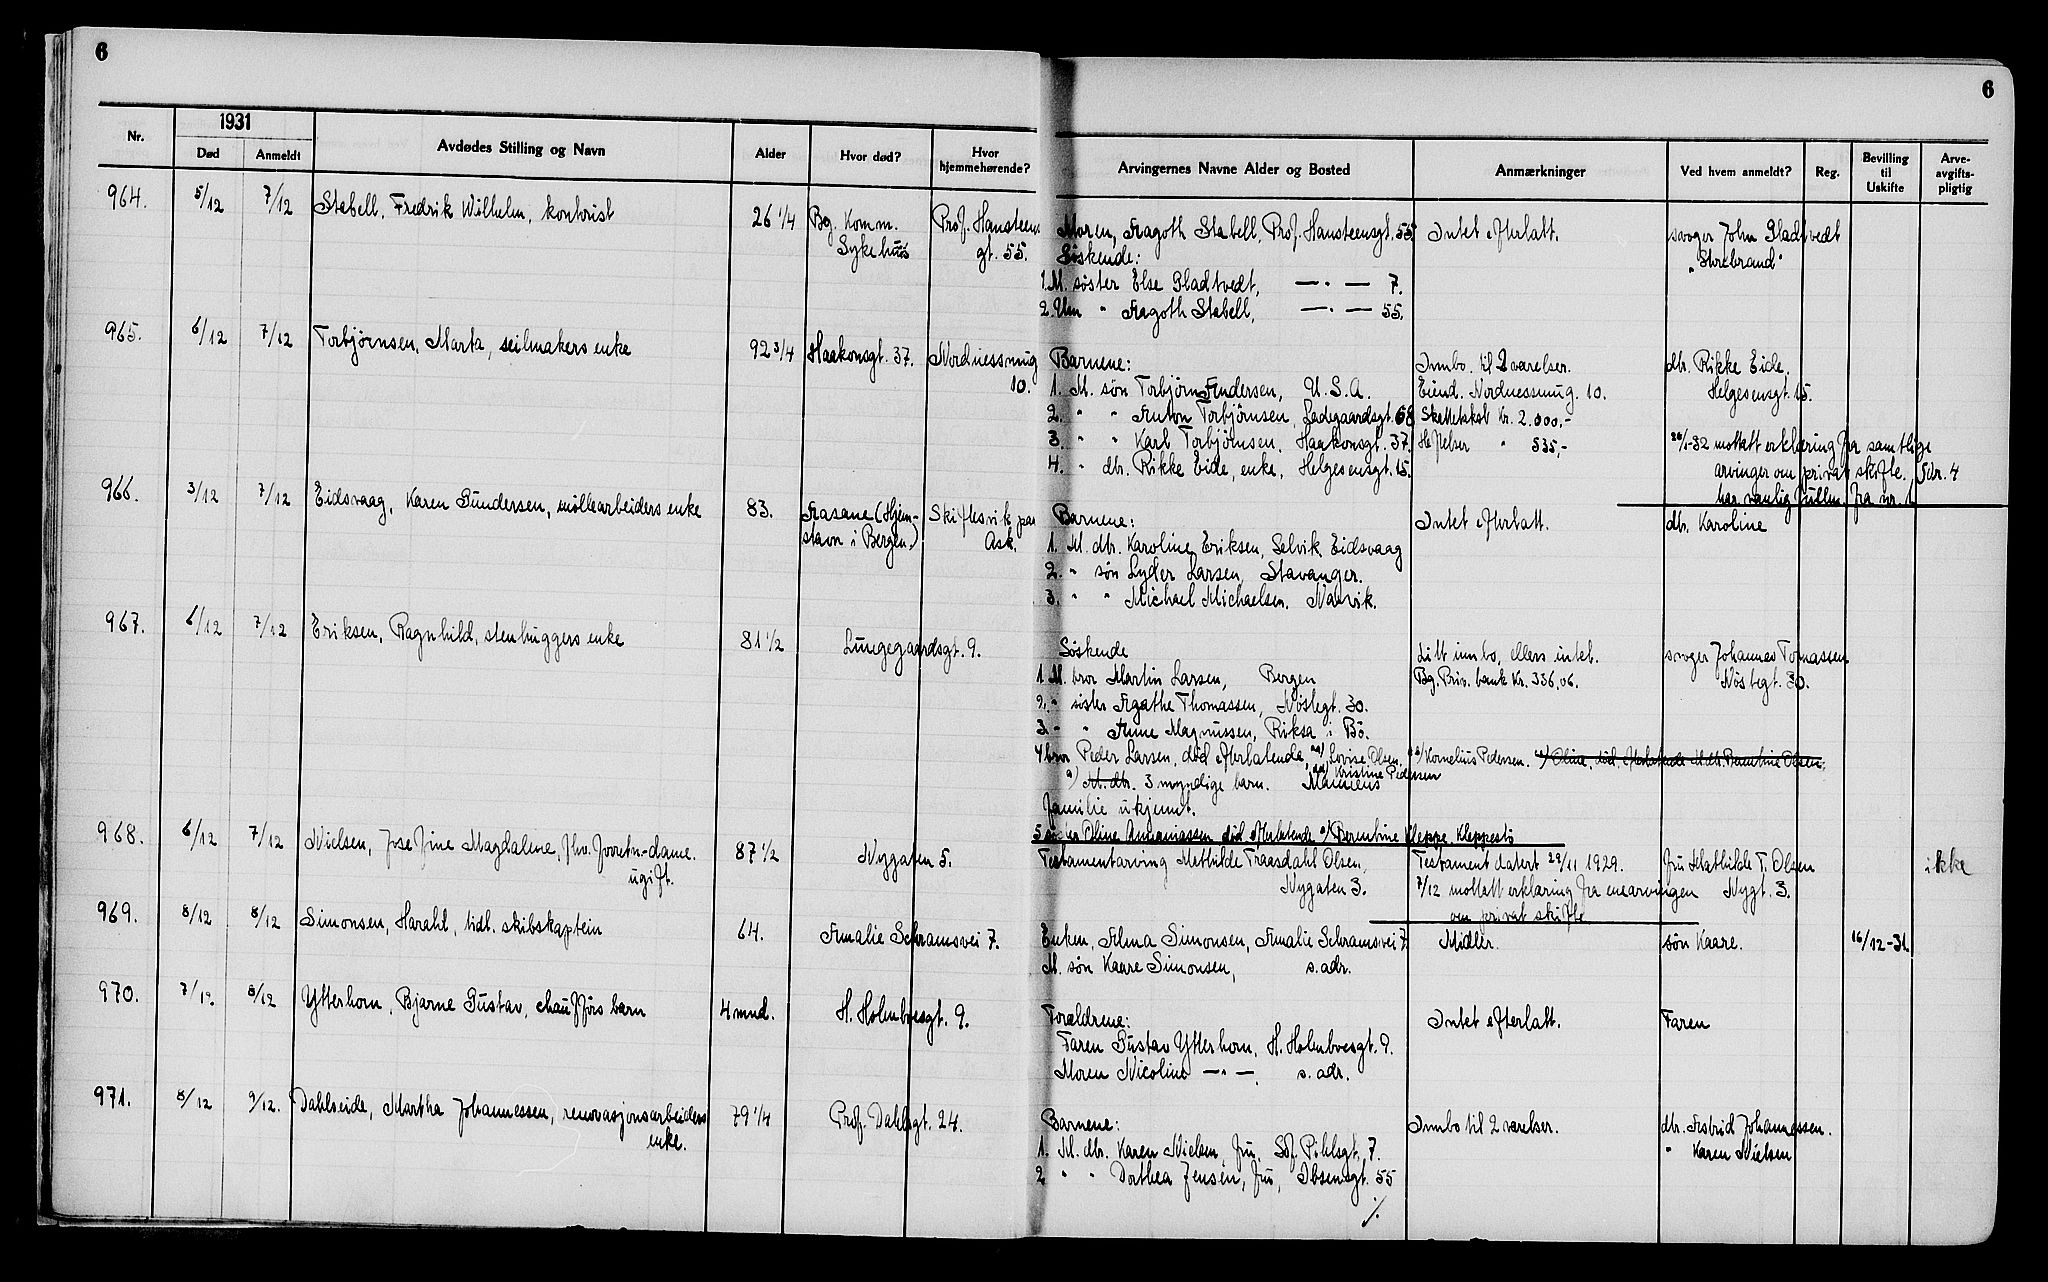 6
6
1931
Nr. Død Anmeldt Avdødes Stilling og Navn Alder Hvor død? Hvor hjemmehørende? Arvingernes Navne Alder og Bosted Anmærkninger Ved hvem anmeldt? Reg. Bevilling til Uskifte Arve-avgifts-pligtig
964. 5/12 7/12 Stabell, Fredrik Wilhelm, kontorist 26 1/4 Bg. Komm. Prof. Hansteens
Sykehus gt. 55.
Moren, Aagoth Stabell, Prof. Hansteensgt. 55. Intet efterlatt. svoger John Gladtvedt
Søskende: "Storebrand"
1. M. søster Else Gladtvedt, — " — 7.
2. Um " Aagoth Stabell, — " — 55.
965. 6/12 7/12 Torbjørnsen, Marta, seilmakers enke 92 3/4 Haakonsgt. 37. Nordnessmug
10.
Barnene: Innbo til 2 værelser. dtr. Rikke Eide,
1. M. søn Torbjørn Andersen, U.S.A. Eiend. Nordnessmug. 10. Helgesensgt. 15.
2. " " Anton Torbjørnsen, Ladegaardsgt. 68 Skattetakst kr. 2.000,-
3. " " Karl Torbjørnsen, Haakonsgt. 37. Heftelser " 535,- 26/1-32 mottatt erklæring fra samtlige
4. " dtr. Rikke Eide, enke, Helgesensgt. 15. arvinger om privat skifte. Fdr. 4
har vanlig fullm. fra nr. 1
966. 3/12 7/12 Eidsvaag, Karen Gundersen, møllearbeiders enke 83. Aasane (Hjem- Skiftesvik paa
stavn i Bergen.) Ask.
Barnene: Intet efterlatt. dtr. Karoline
1. M. dtr. Karoline Eriksen, Selvik, Eidsvaag
2. " søn Lyder Larsen, Stavanger.
3. " " Michael Michaelsen, Narvik.
967. 6/12 7/12 Eriksen, Ragnhild, stenhuggers enke 81 1/2 Lungegaardsgt. 9.
Søskende Litt innbo, ellers intet. svoger Johannes Tomassen
1. M. bror Martin Larsen, Bergen Bg. Priv. bank kr. 336,06. Nøstegt. 30.
2. " søster Agathe Thomassen, Nøstegt. 30.
3. " " Anne Magnussen, Riksa i Bø.
4 bror Peder Larsen, død efterlatende, aa) Lovise Olsen, Kornelius Pedersen. Oline, død, efterlatende M.dtr. Berentine Olsen,
a) M. dtr. 3 myndige barn. Kristine Pedersen
familie ukjent.
5 søster Oline død efterlatende a) Berentine Kleppe, Kleppestø
968. 6/12 7/12 Nielsen, Josefine Magdalene, fhv. forretn-dame. 87 1/2 Nygaten 5.
ugift.
Testamentarving Mathilde Traasdahl Olsen, Testament datert 29/11 1929. fru Mathilde T. Olsen ikke
Nygaten 3. 7/12 mottatt erklæring fra enearvingen Nygt. 3.
om privat skifte
969. 8/12 8/12 Simonsen, Harald, tidl. skibskaptein 64. Amalie Schramsvei 7.
Enken, Alma Simonsen, Amalie Schramsvei 7 Midler. søn Kaare. 16/12-31
M. søn Kaare Simonsen, s. adr.
970. 7/12 8/12 Ytterhorn, Bjarne Gustav, chauffførs barn 4 mnd. H. Holmboesgt. 9.
Forældrene: Intet efterlatt. Faren
Faren Gustav Ytterhorn, H. Holmboesgt. 9.
Moren Nicoline — " — s. adr.
971. 8/12 9/12. Dahlseide, Martha Johannessen, renovasjonsarbeiders 79 1/4 Prof. Dahlsgt. 24.
enke.
Barnene: Innbo til 2 værelser. dtr. Astrid Johannessen.
1. M. dtr. Karen Nielsen, fru, Sof. Pihlsgt. 7. " Karen Nielsen
2 " " Dorthea Jensen, fru, Ibsensgt. 55
./.